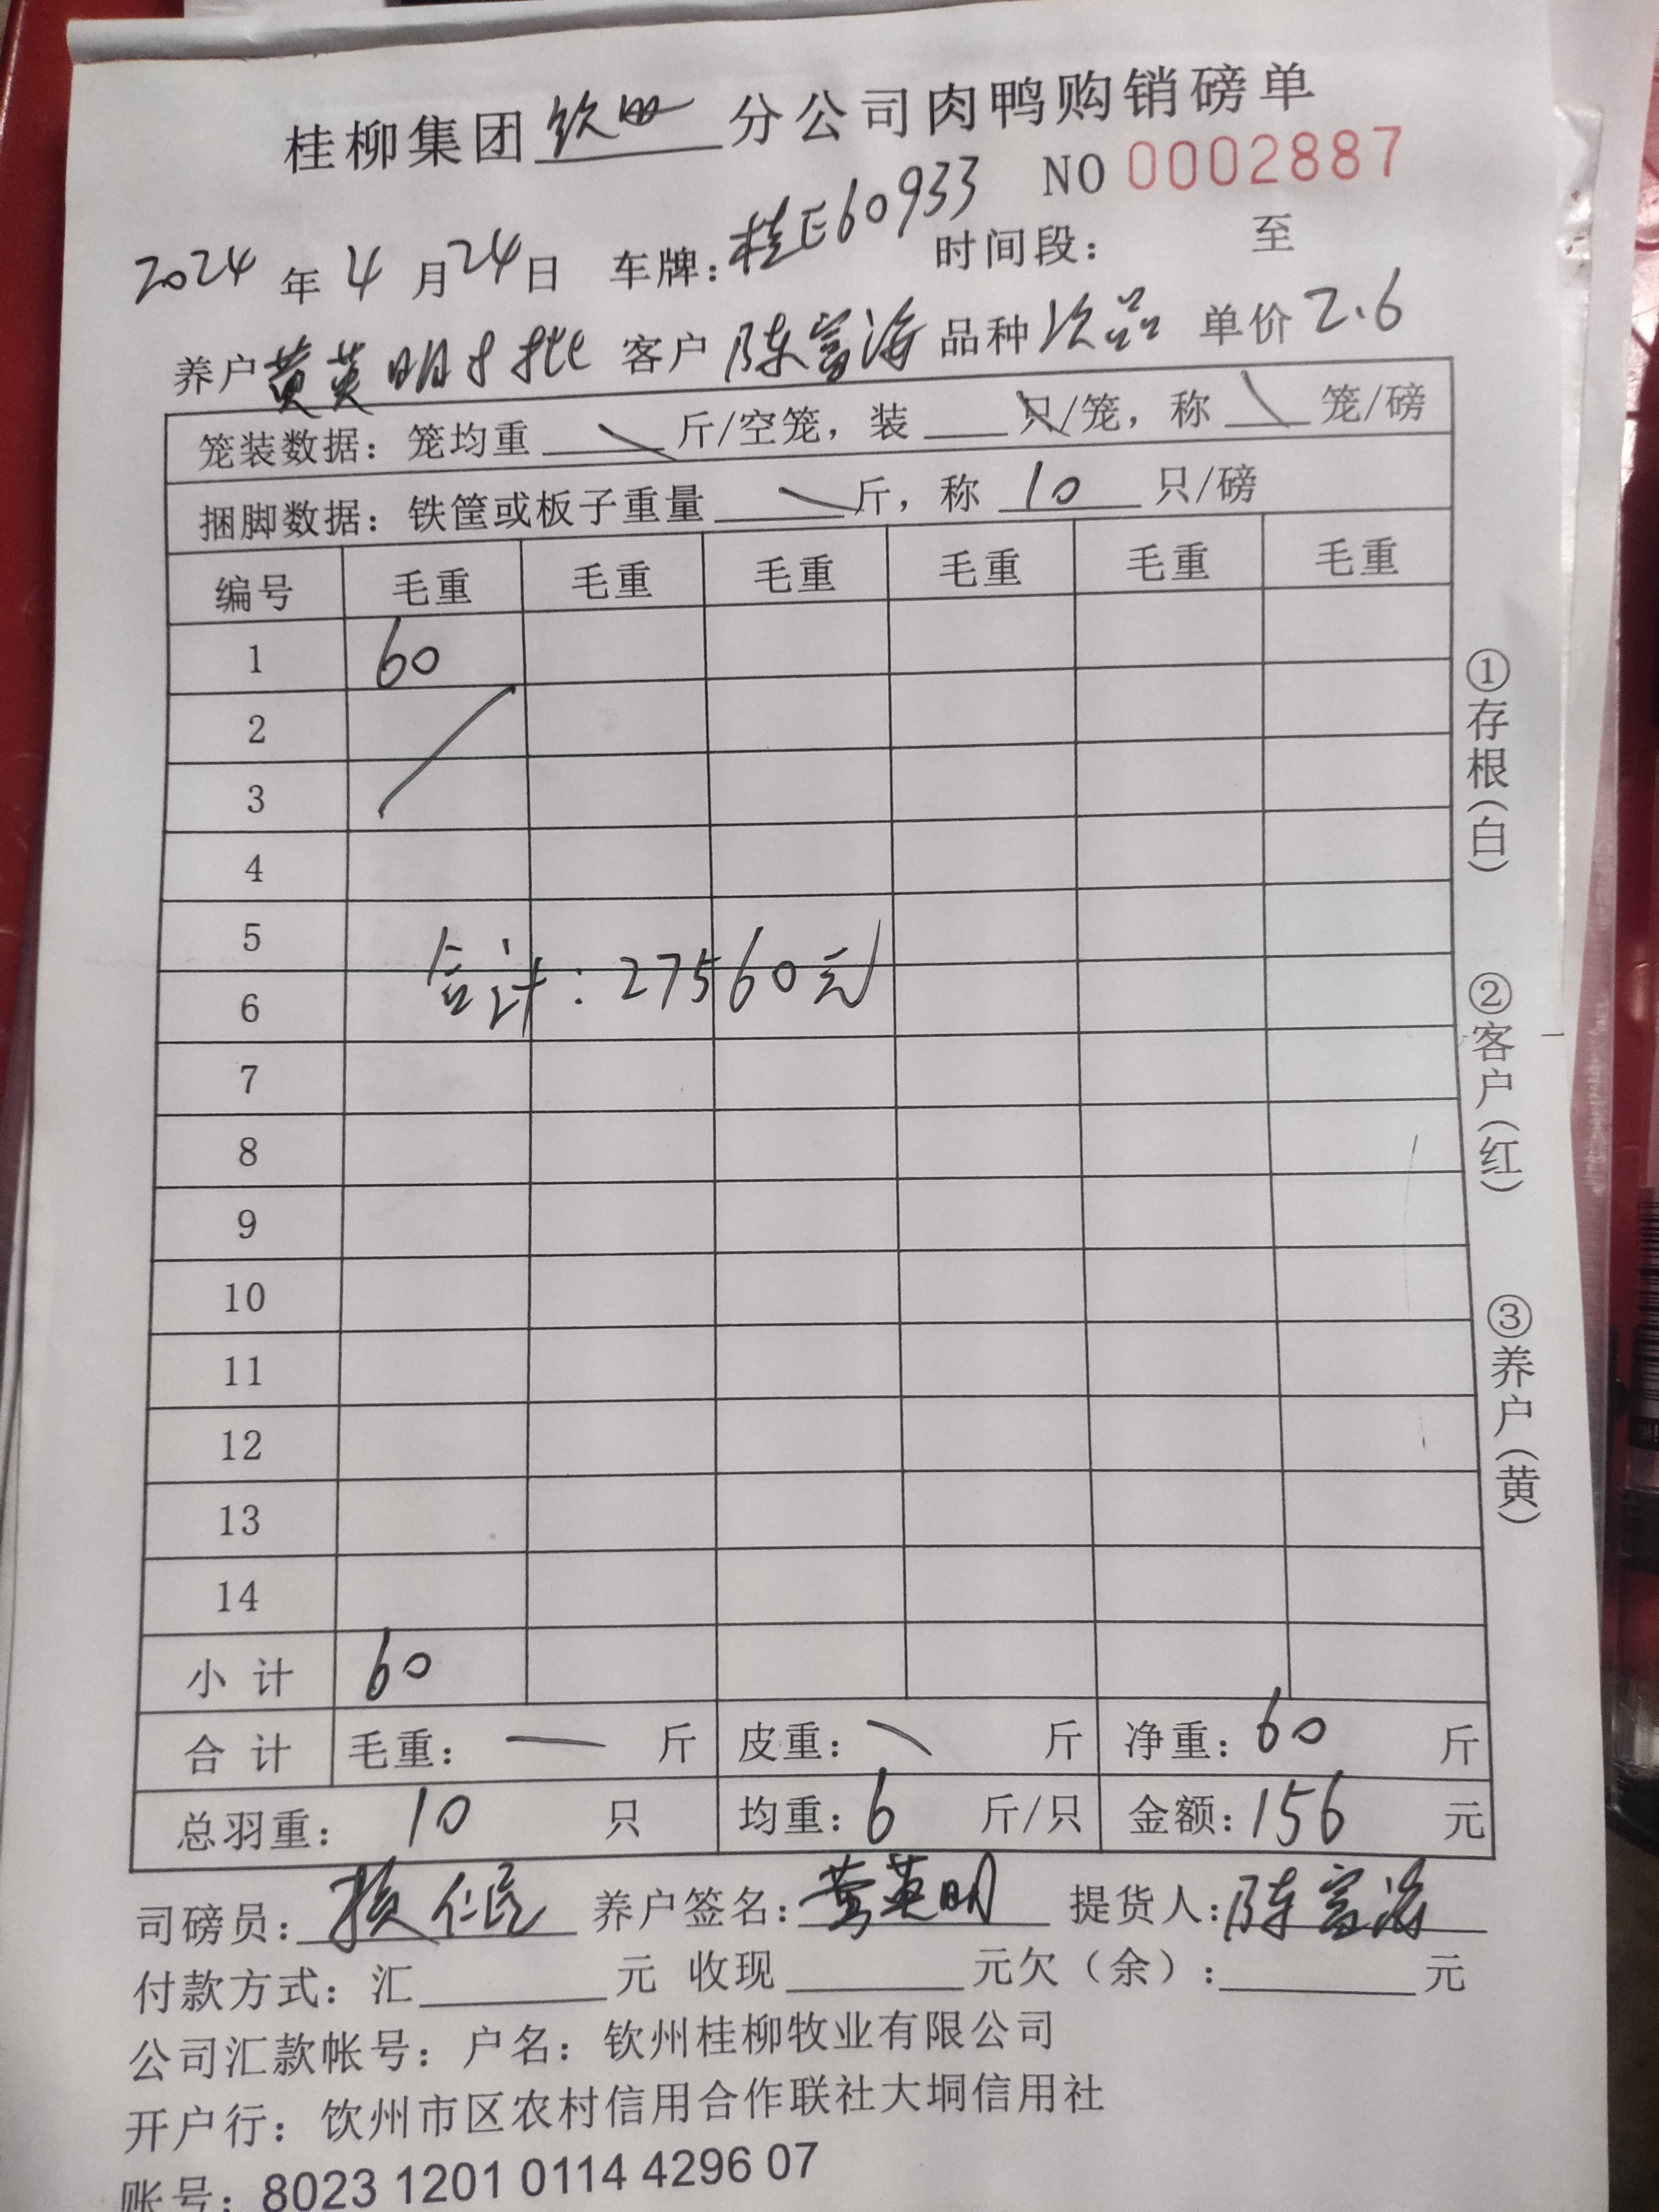 桂柳集团钦州分公司肉鸭购销磅单
NO 0002887
2024年4月24日 车牌:桂E60933 时间段: 至
养户黄英明 批 客户陈富海 品种次品 单价2.6
笼装数据:笼均重 斤/空笼,装 只/笼,称 笼/磅
捆脚数据:铁筐或板子重量 斤,称 10 只/磅
编号 毛重 毛重 毛重 毛重 毛重 毛重
1 60
2
3
4
5
合计:27560元
6
7
8
9
10
11
12
13
14
小 计 60
合 计 毛重: — 斤 皮重: 斤 净重:60 斤
总羽重: 10 只 均重:6 斤/只 金额:156 元
司磅员: 养户签名:黄英明 提货人:陈富海
付款方式:汇 元 收现 元欠(余): 元
公司汇款帐号:户名:钦州桂柳牧业有限公司
开户行:饮州市区农村信用合作联社大垌信用社
账号:8023 1201 0114 4296 07
①存根(白)
②客户(红)
③养户(黄)